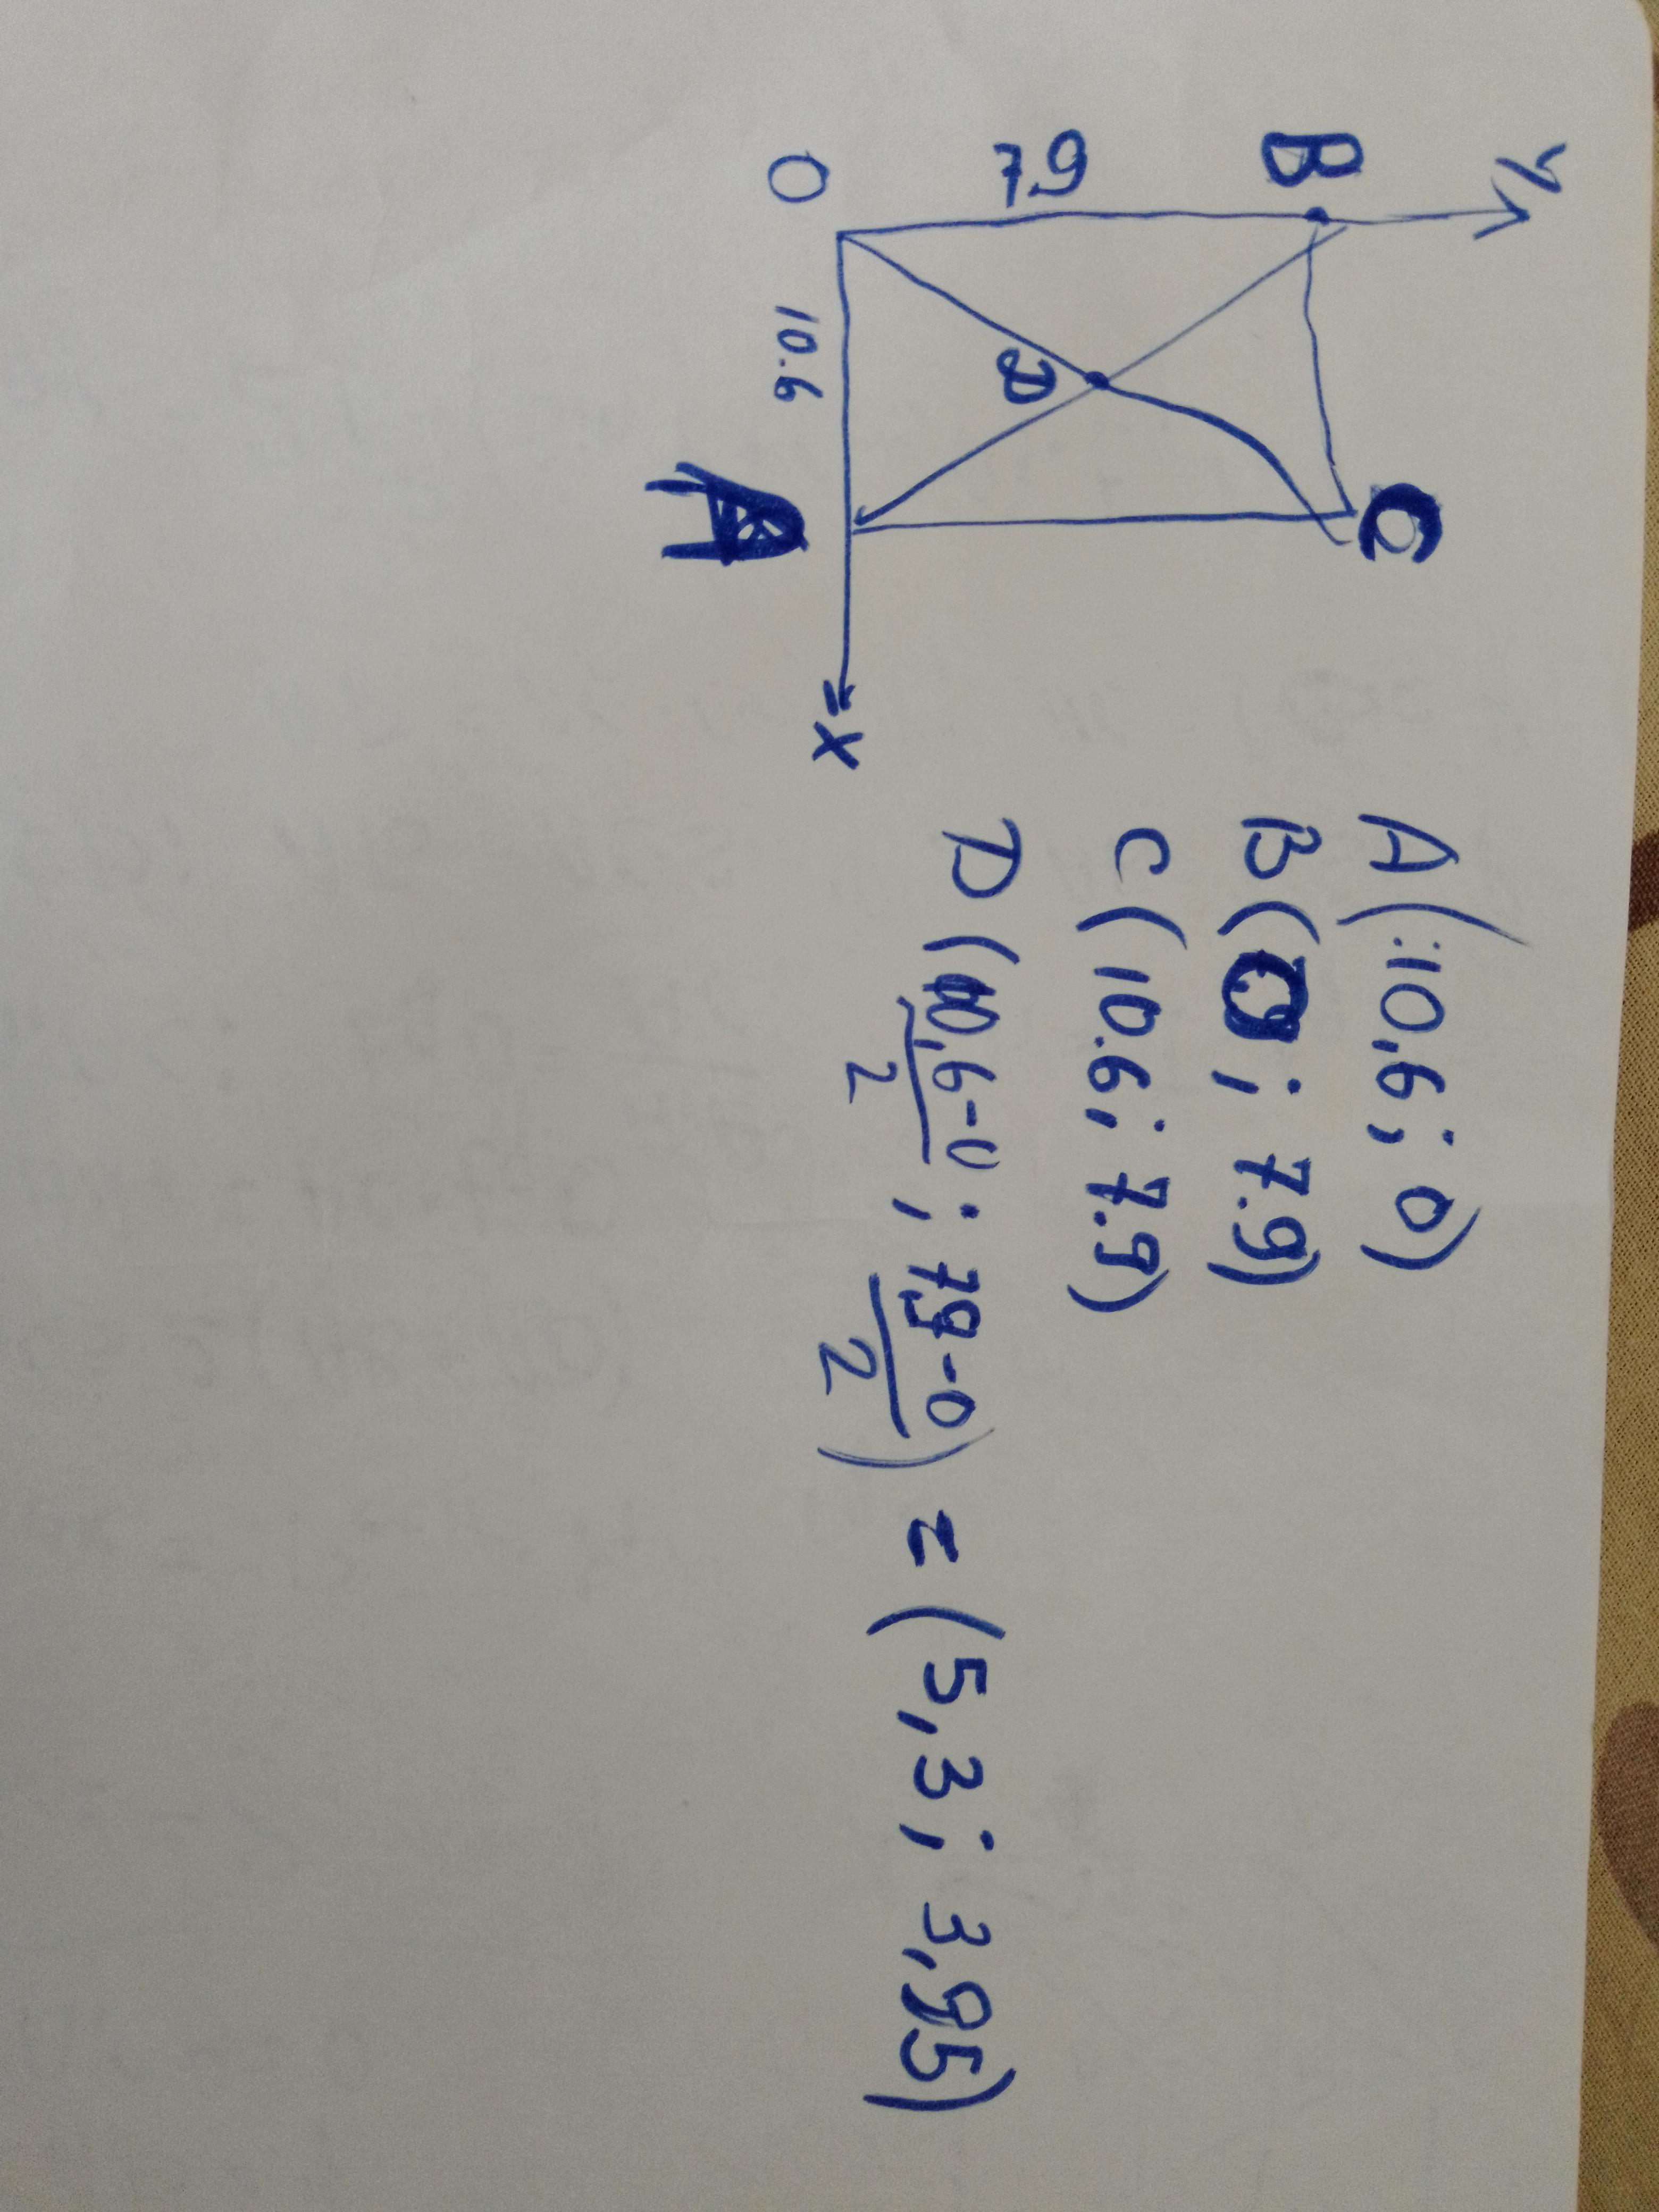 y
B
C
7.9
D
O
10.6
A
x
A(10,6; 0)
B(0; 7.9)
C(10.6; 7.9)
D(10,6-0/2; 7,9-0/2) = (5,3; 3,95)